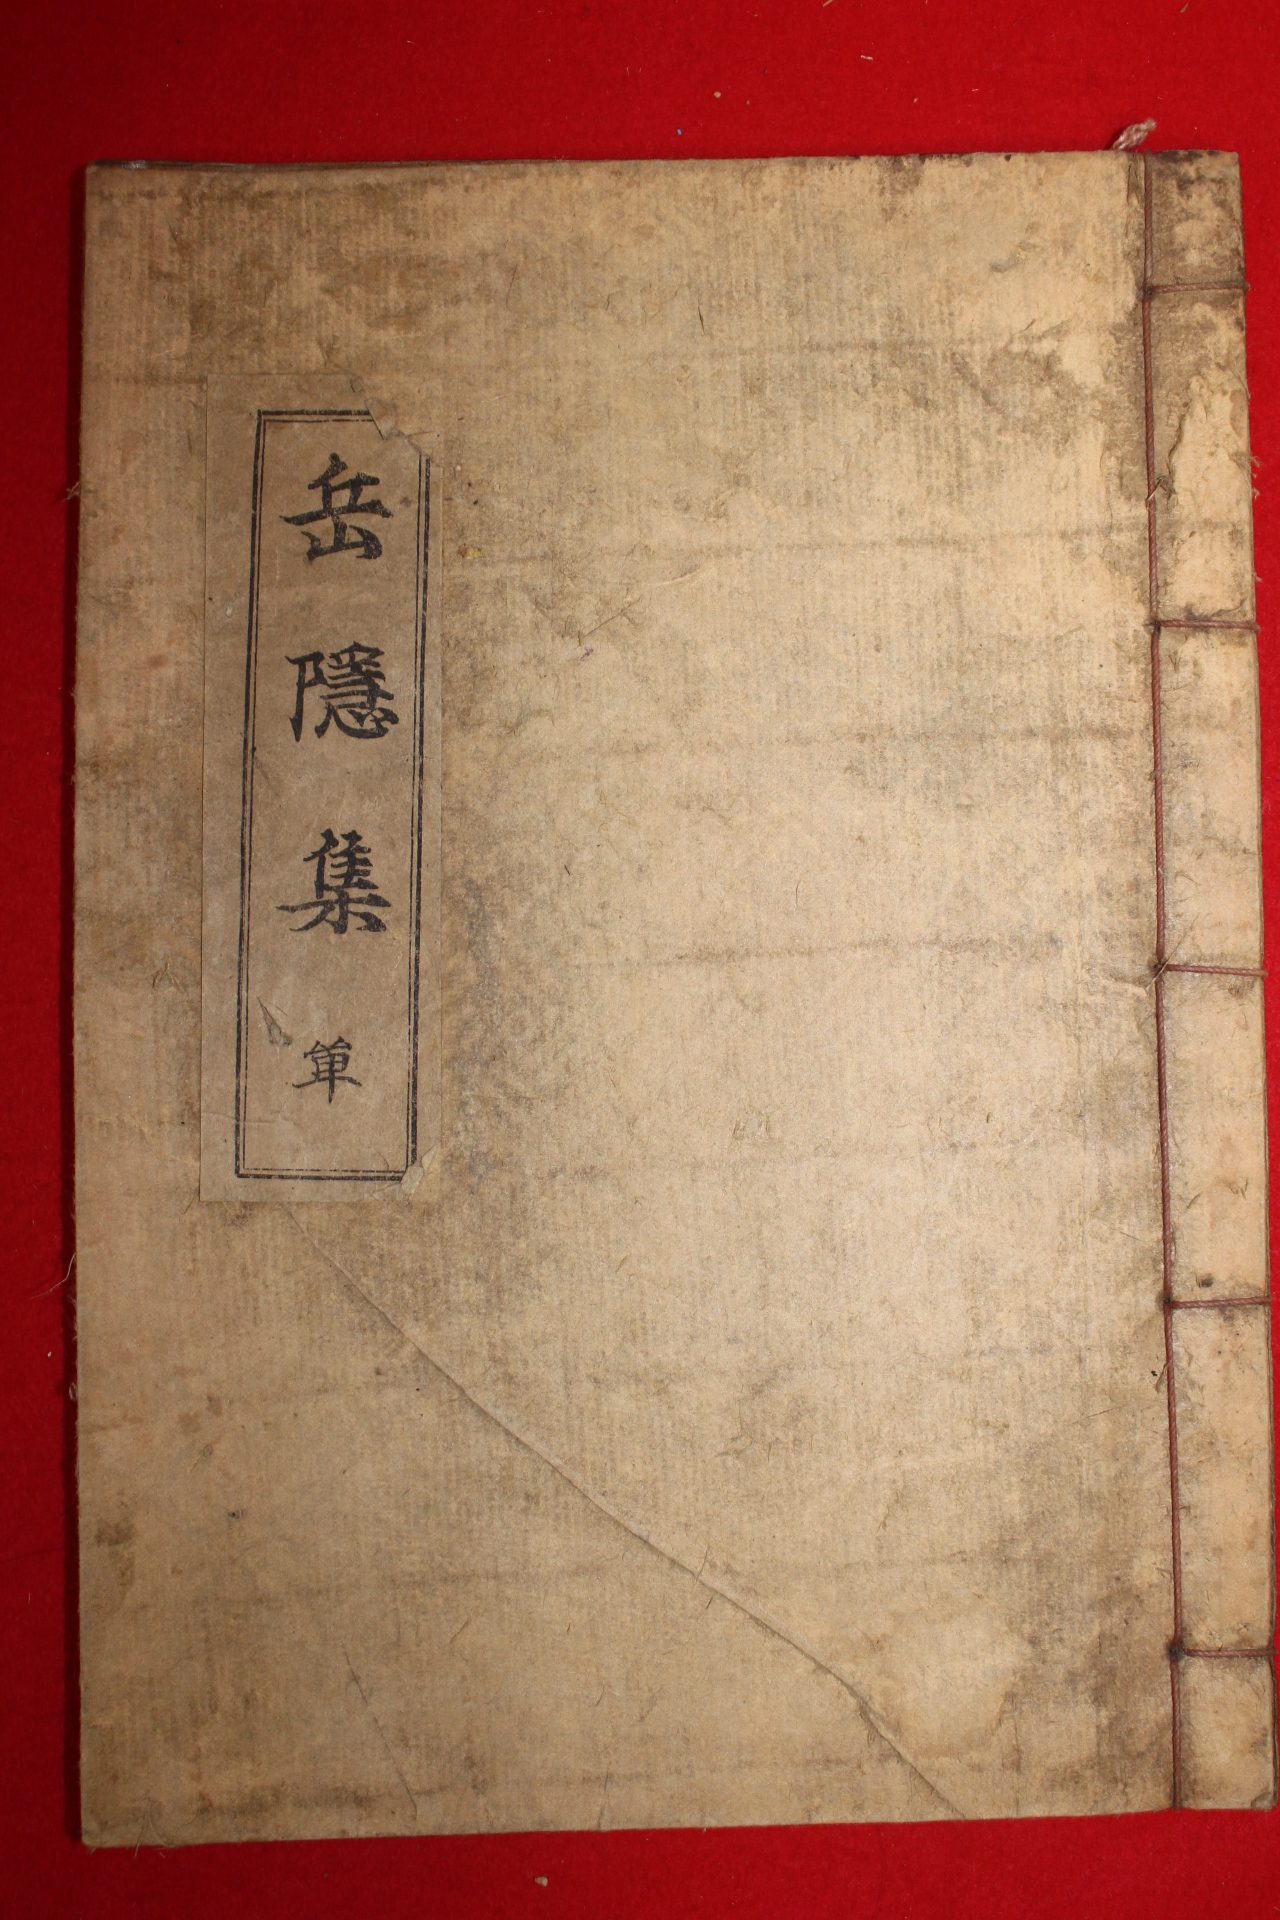 岳隱集 單